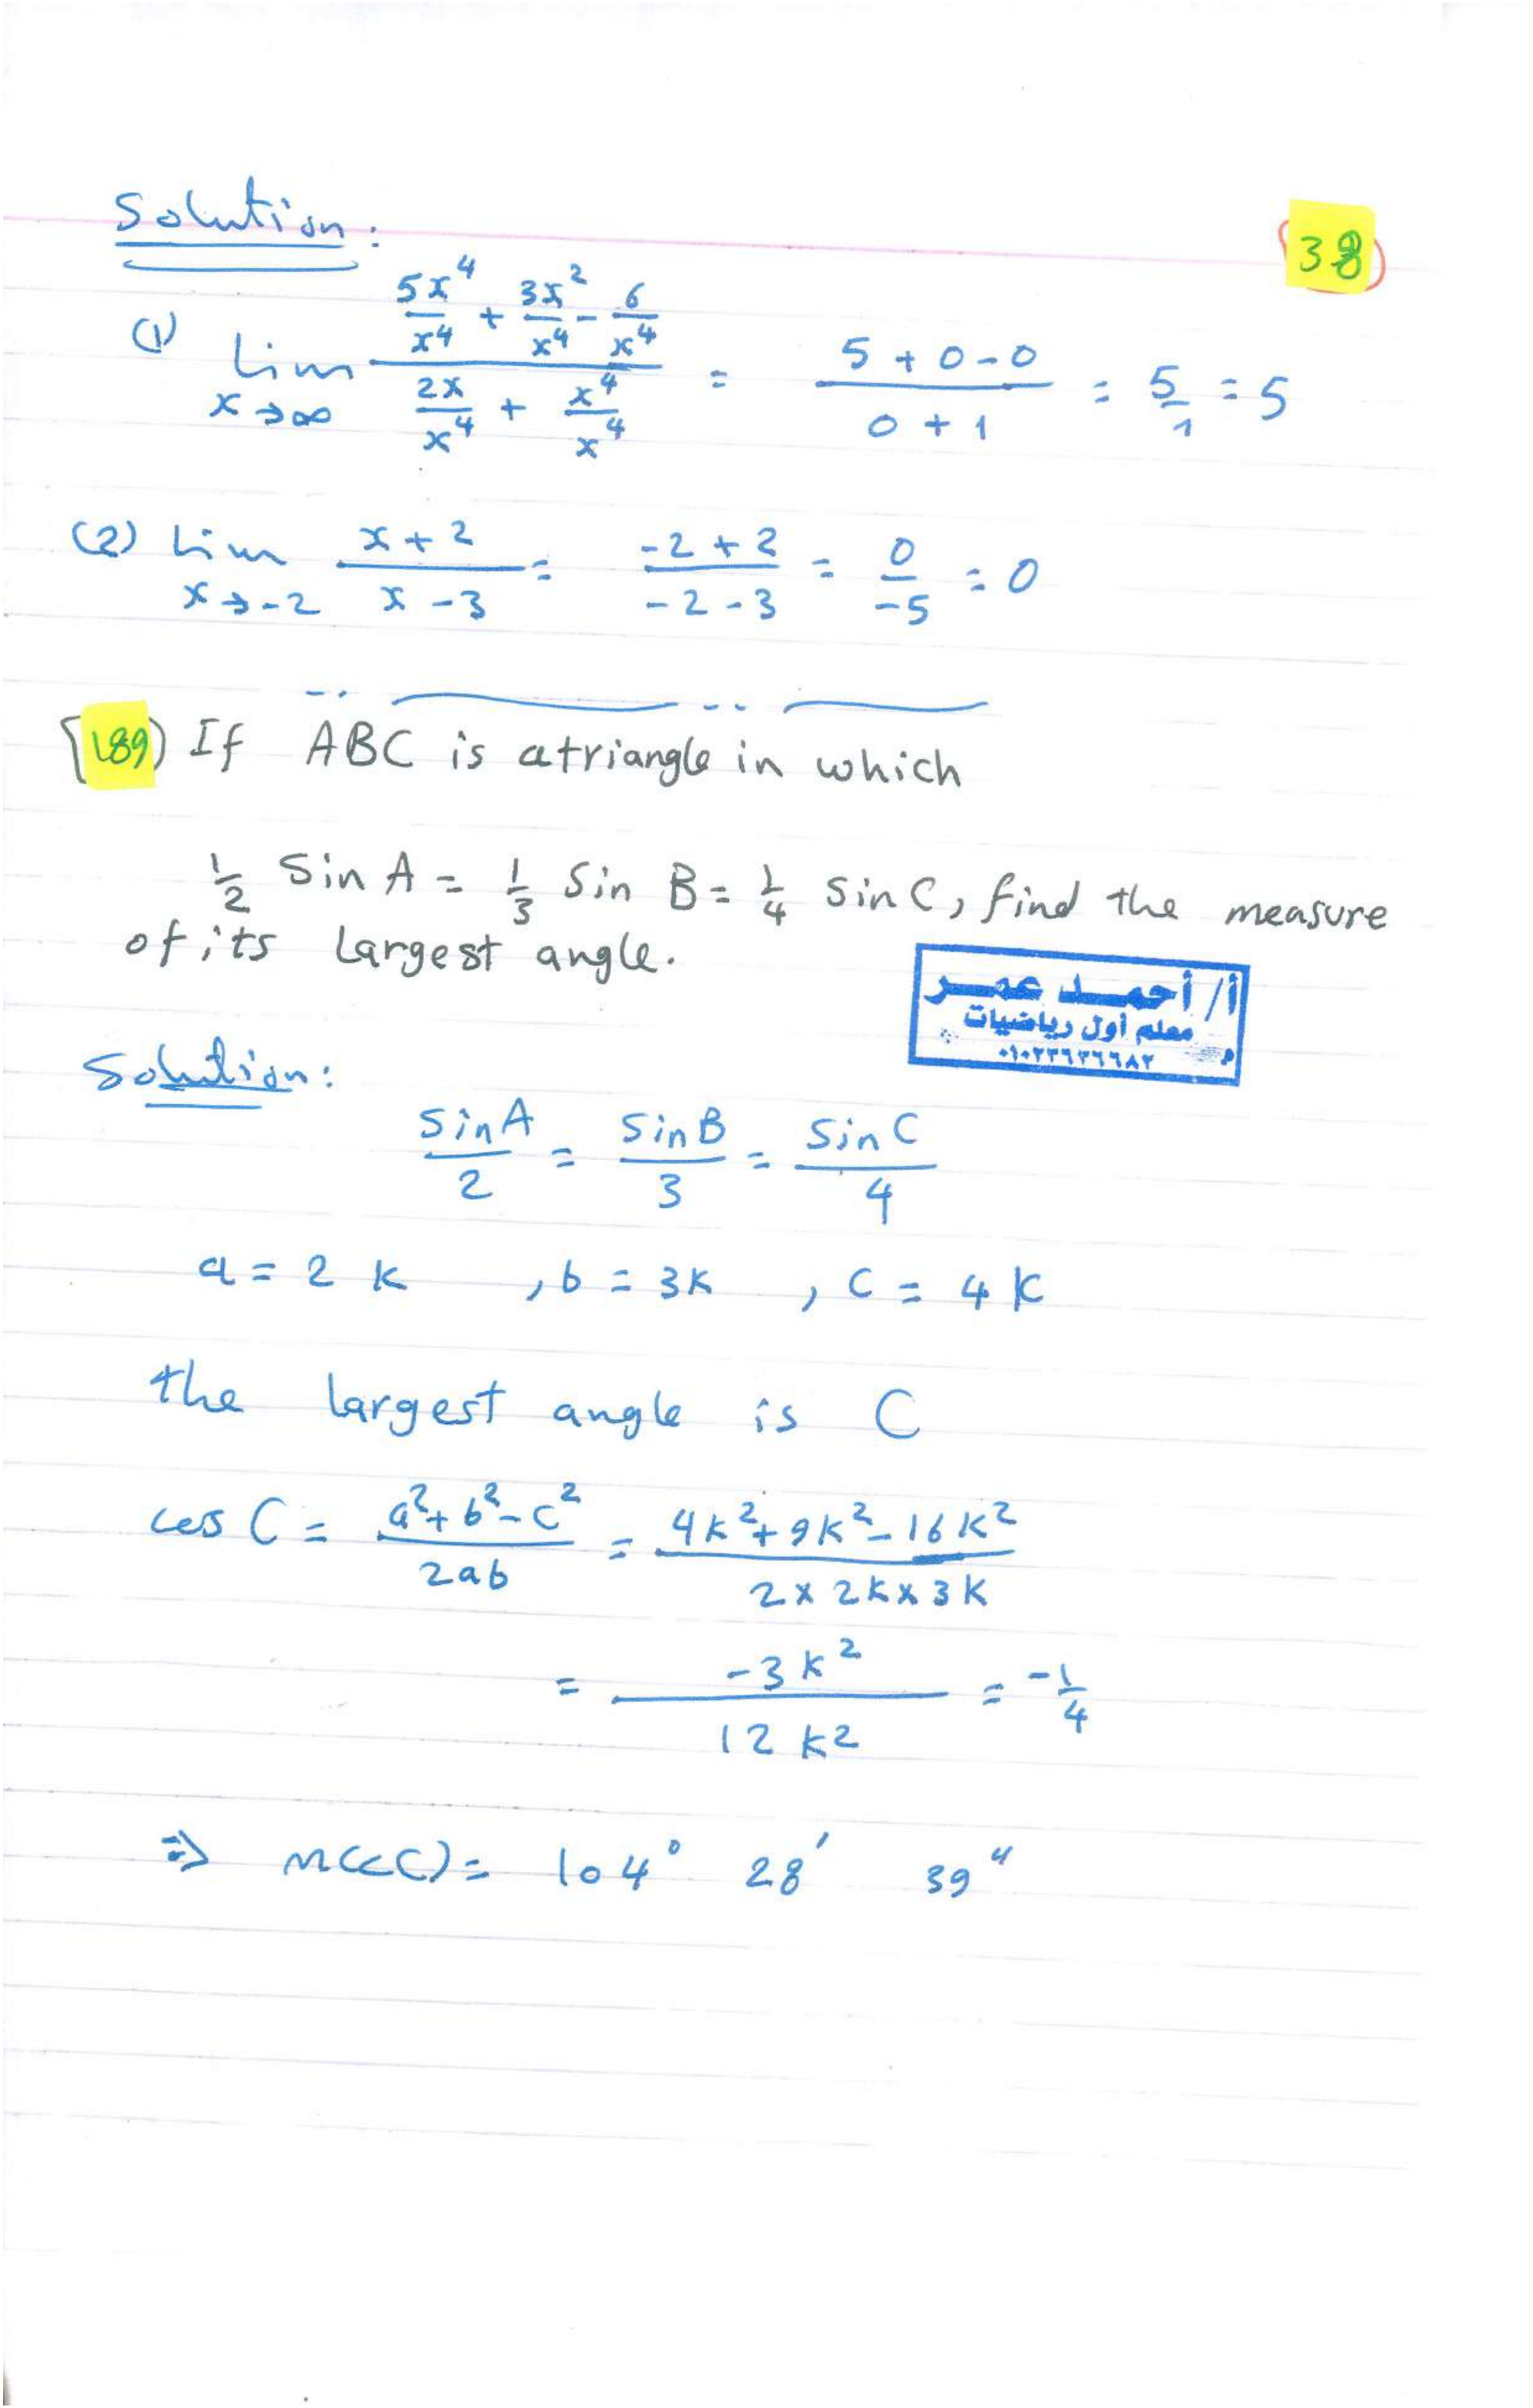 Solution:
38
(1) Lim x→∞ (5x⁴/x⁴ + 3x²/x⁴ - 6/x⁴) / (2x/x⁴ + x⁴/x⁴) = (5+0-0)/(0+1) = 5/1 = 5
(2) Lim x→-2 (x+2)/(x-3) = (-2+2)/(-2-3) = 0/-5 = 0
189) If ABC is a triangle in which
1/2 Sin A = 1/3 Sin B = 1/4 Sin C, find the measure
of its largest angle.
أ/ أحمد عمر
معلم أول رياضيات
Solution:
Sin A/2 = Sin B/3 = Sin C/4
a = 2k , b = 3k , c = 4k
the largest angle is C
cos C = (a²+b²-c²)/2ab = (4k²+9k²-16k²)/(2×2k×3k)
= -3k²/12k² = -1/4
⇒ m(∠C) = 104° 28' 39"